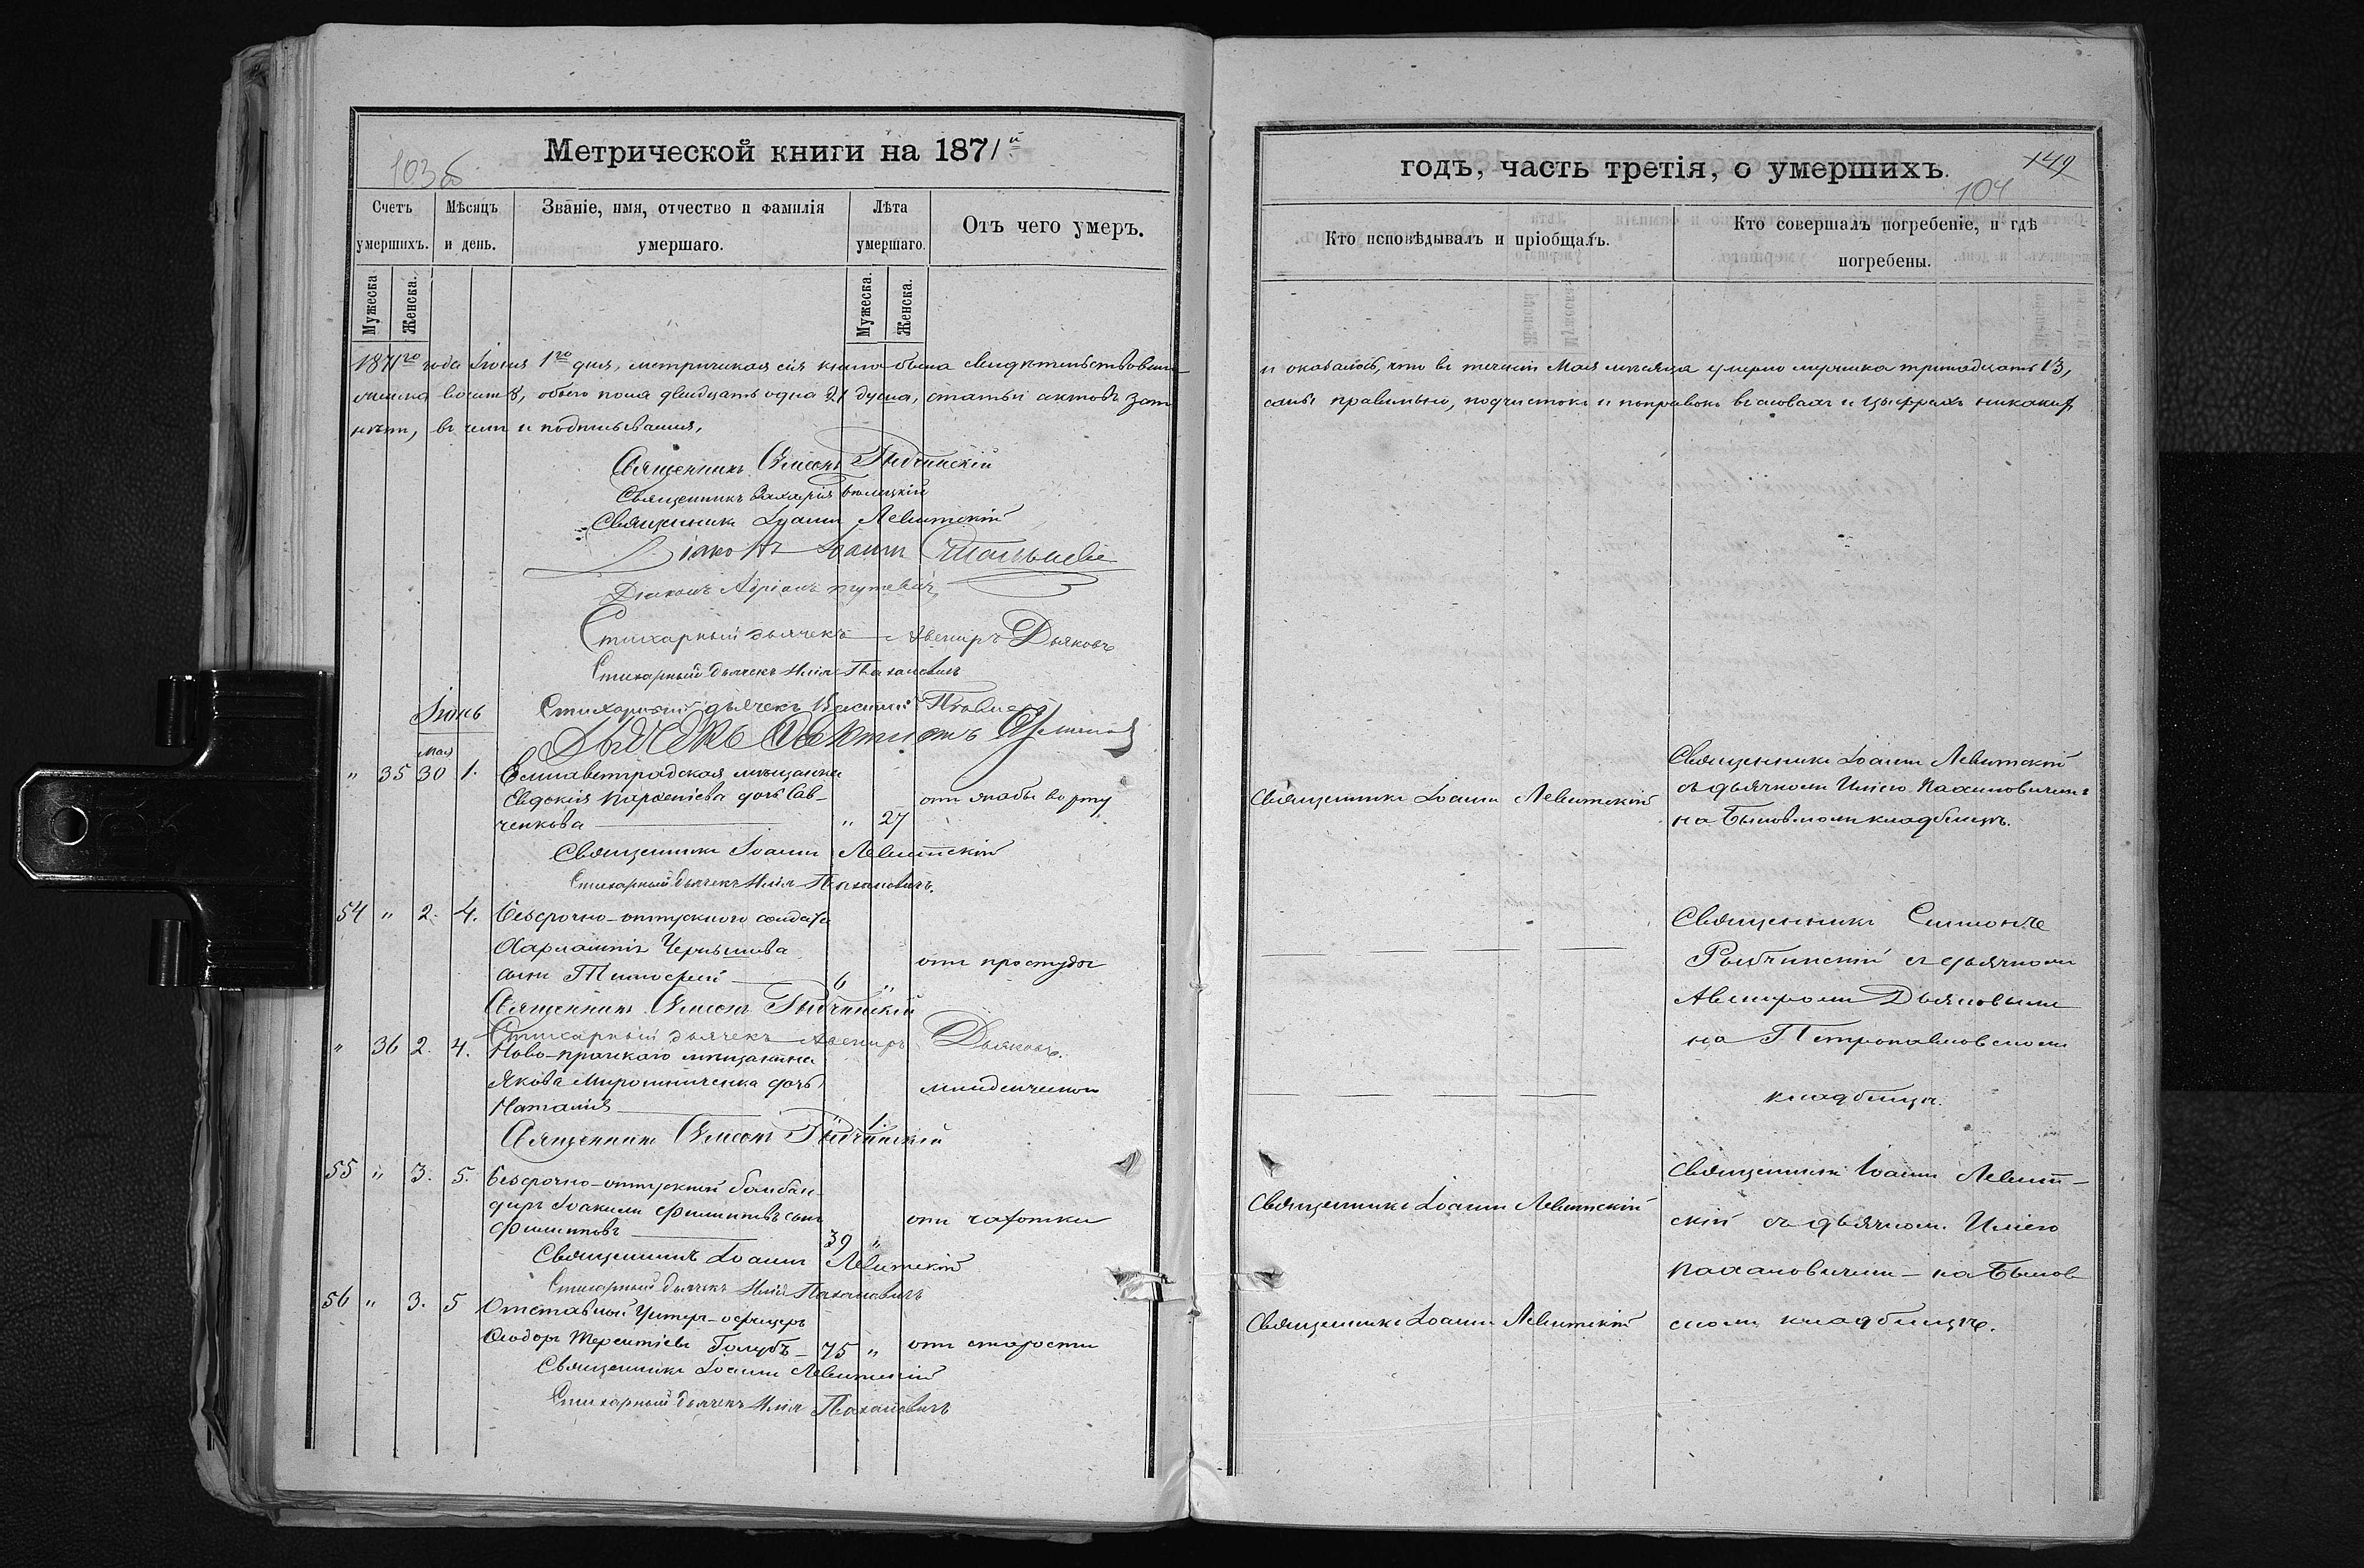 Метрической книги на 1871й
103 об
Счетъ умершихъ.
Мѣсяцъ и день.
Званіе, имя, отчество и фамилія умершаго.
Лѣта умершаго.
Отъ чего умеръ.
Мужеска
Женска.
Мужеска.
Женска.
1871го года Іюня 1го дня, метрическая сія книга была свидѣтельствована
женска восемь 8, обоего пола двадцать одна 21 душа, статьи актовъ
нѣтъ, въ чемъ и подписываемся,
Священникъ Симеонъ Рыбчинскій
Священникъ Захарія
Священникъ Іоаннъ Левитскій
Діаконъ Іоаннъ
Діаконъ Адріанъ
Стихарный дьячекъ Авениръ Дьяковъ
Стихарный дьячекъ Илія Пахановичъ
Іюнь
Стихарный дьячекъ Василій
Дьячекъ
Мая
" 35 30 1. Елисаветградская мѣщанка
Евдокія Парѳеніева дочь Сав-
ченкова " 27
отъ жабы во рту
Священникъ Іоаннъ Левитскій
Стихарный дьячекъ Илія Пахановичъ.
54 " 2. 4. Безсрочно-отпускного солдата
Харлампія Чернышева
сынъ Тимоѳей 6 "
отъ простуды
Священникъ Симеонъ Рыбчинскій
Стихарный дьячекъ Авениръ Дьяковъ.
" 36 2. 4. Ново-прагскаго мѣщанина
Якова Мирошниченка дочь
Наталія " 1.
младенческой
Священникъ Симеонъ Рыбчинскій
55 " 3. 5. Безсрочно-отпускной бомбан-
диръ Іоакимъ Филипповъ сынъ
Филипповъ 39 "
отъ чахотки
Священникъ Іоаннъ Левитскій
Стихарный дьячекъ Илія Пахановичъ
56 " 3. 5 Отставной Унтеръ-офицеръ
Ѳеодоръ Терентіевъ Голубъ - 75 "
отъ старости
Священникъ Іоаннъ Левитскій
Стихарный дьячекъ Илія Пахановичъ
годъ, часть третія, о умершихъ.
149
104
Кто исповѣдывалъ и пріобщалъ.
Кто совершалъ погребеніе, и гдѣ погребены.
и оказалось, что въ теченіи Мая мѣсяца умерло мужеска тринадцать 13,
саны правильно, подчистокъ и поправокъ въ словахъ и цыфрахъ никакихъ
Священникъ Іоаннъ Левитскій
Священникъ Іоаннъ Левитскій
съ дьячкомъ Иліею Пахановичемъ
на Быковскомъ кладбищѣ.
Священникъ Симеонъ
Рыбчинскій съ дьячкомъ
Авениромъ Дьяковымъ
на Петропавловскомъ
кладбищѣ.
Священникъ Іоаннъ Левитскій
Священникъ Іоаннъ Левит-
скій съ дьячком. Иліею
Пахановичемъ - на Быков-
Священникъ Іоаннъ Левитскій
скомъ кладбищѣ.